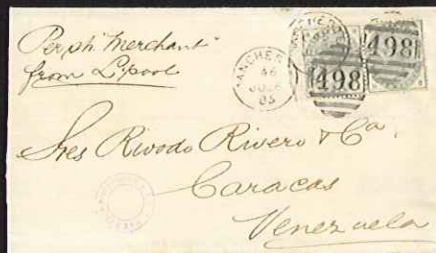 Per ph "Merchant"
from L'pool
MANCHES
46
JU
498
498
Sres Rivodo Rivero & Ca.
Caracas
Venezuela